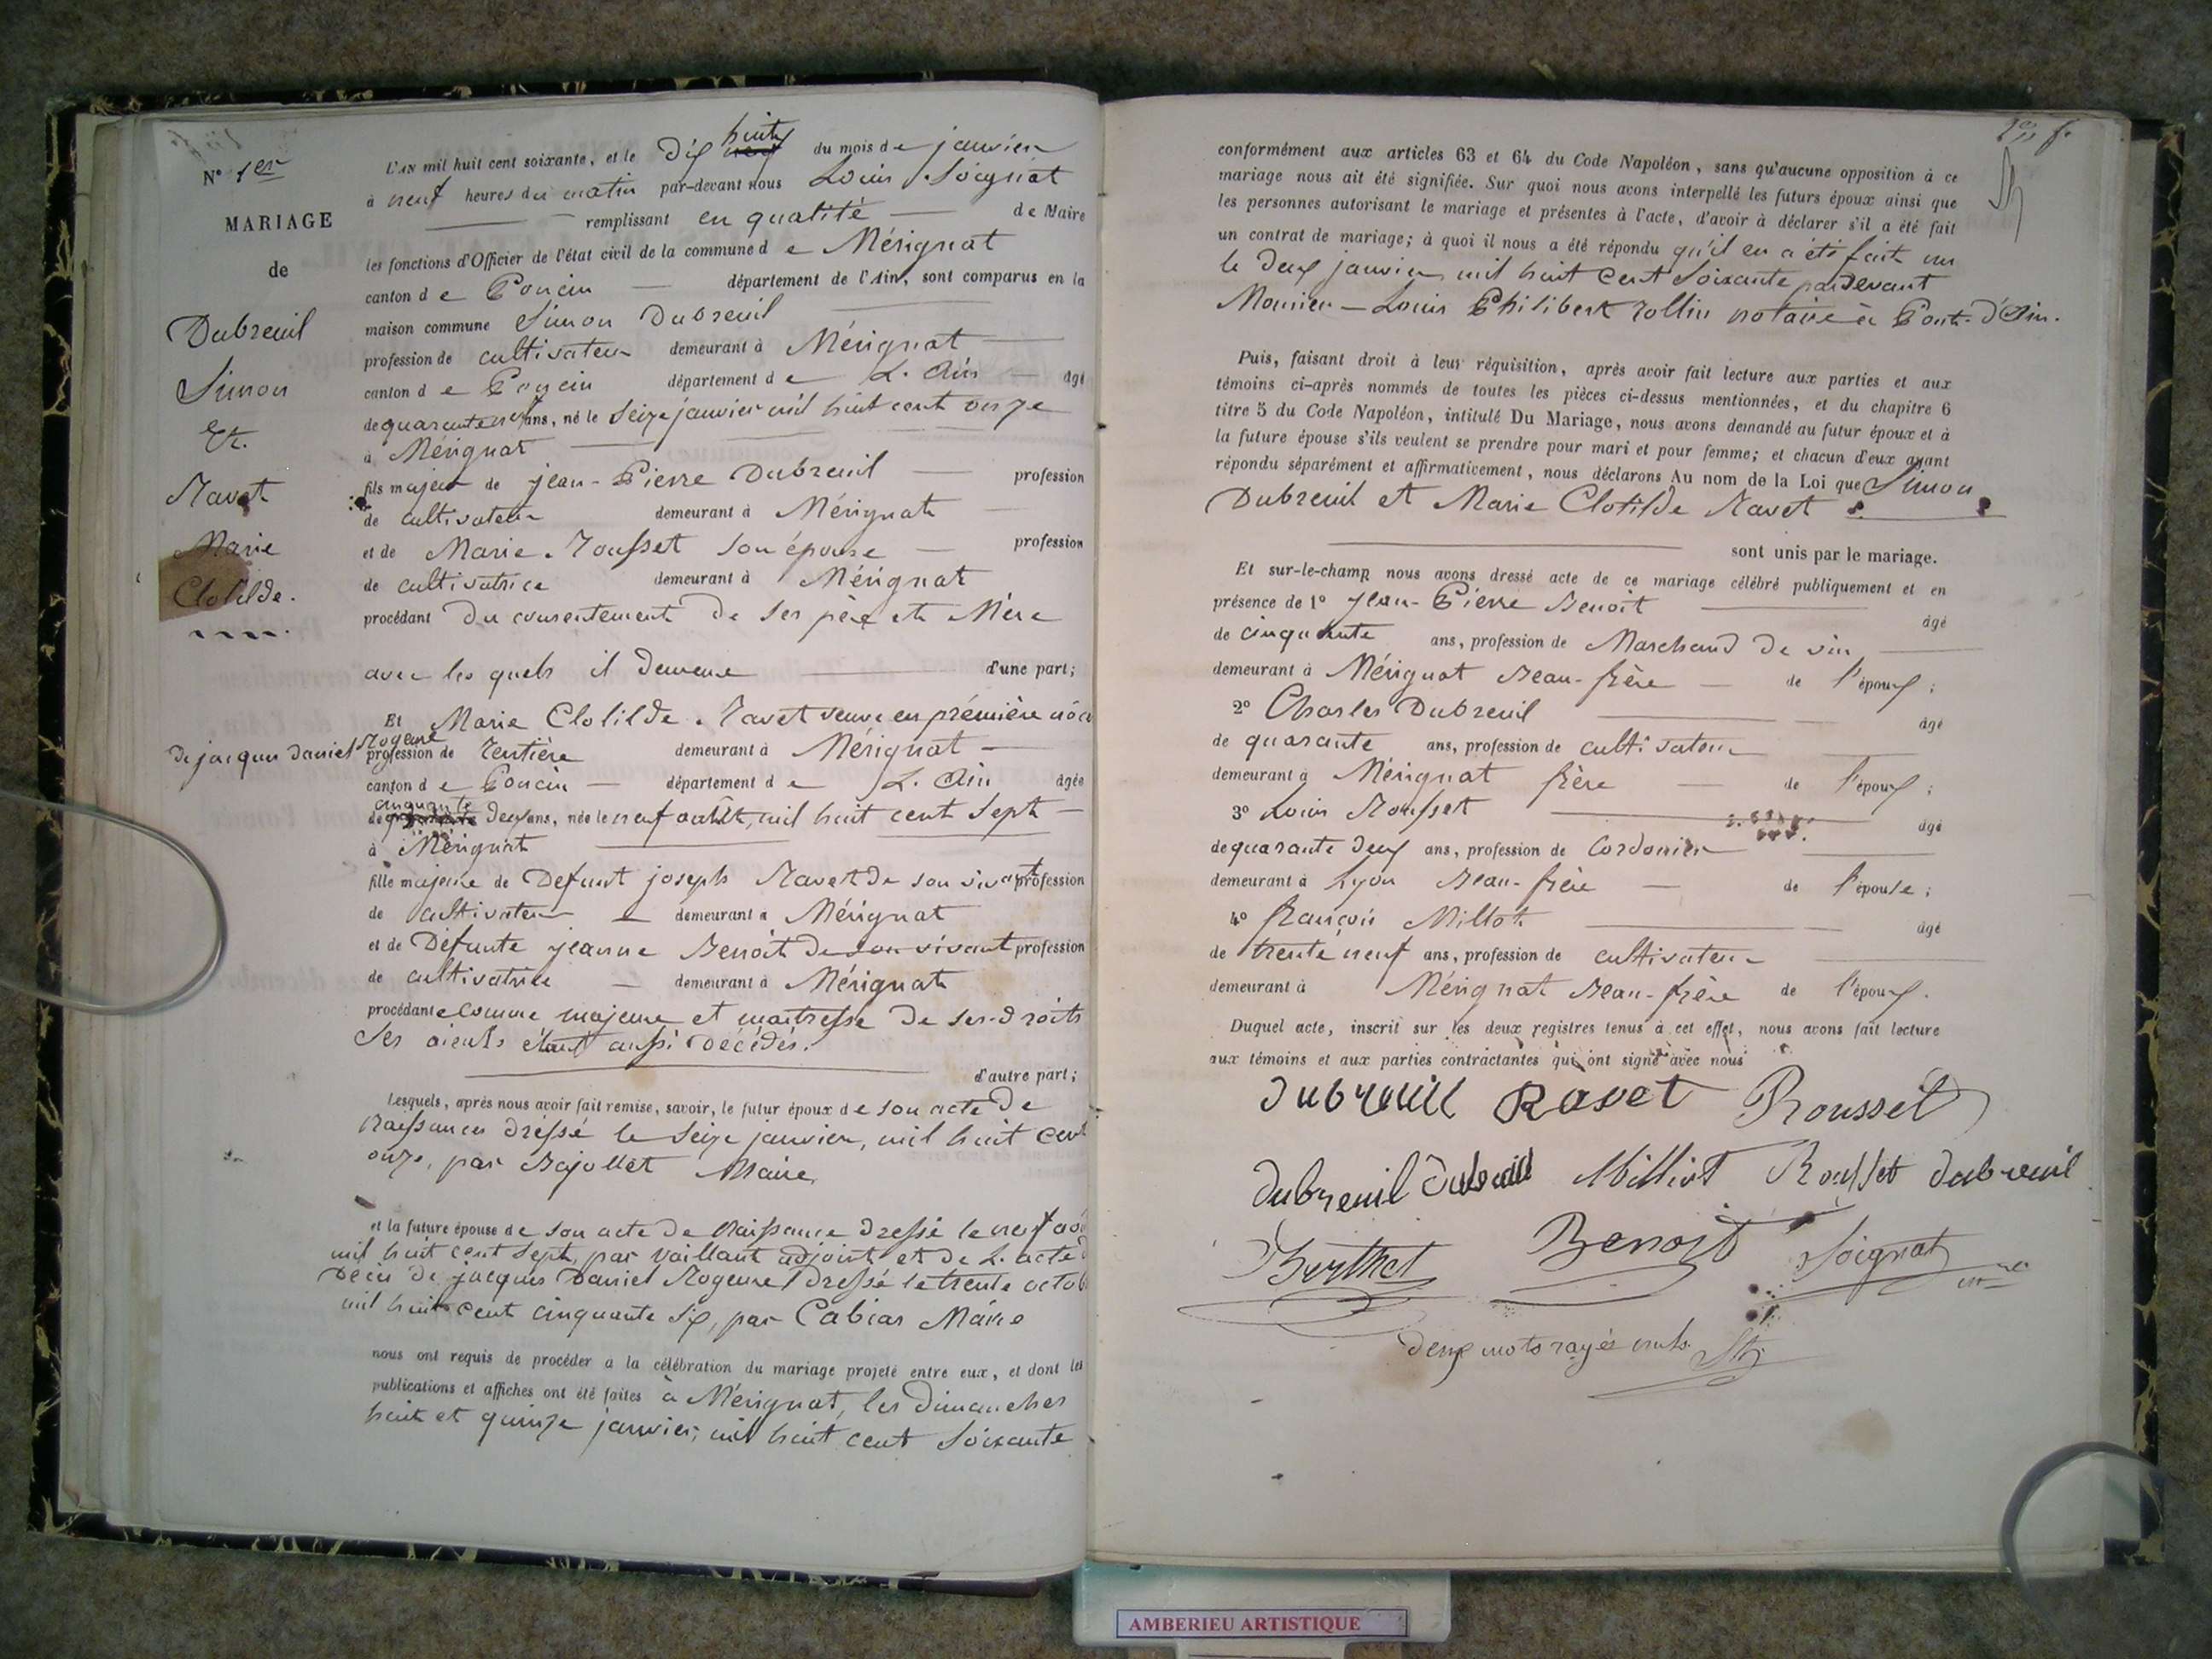 N° 1er
MARIAGE
de
Dubreuil
Simon
Et.
Ravet
Marie
Clotilde.
L'AN mil huit cent soixante, et le Dix huit du mois de janvier
à neuf heures du matin par-devant nous Louis Soignat
remplissant en qualité de Maire
les fonctions d'Officier de l'état civil de la commune de Mérignat
canton de Poncin département de l'Ain, sont comparus en la
maison commune Simon Dubreuil
profession de cultivateur demeurant à Mérignat
canton de Poncin département de L. Ain âgé
de quarante neuf ans, né le Seize janvier mil huit cent onze
à Mérignat
fils majeur de jean-Pierre Dubreuil profession
de cultivateur demeurant à Mérignat
et de Marie Rousset son épouse profession
de cultivatrice demeurant à Mérignat
procédant Du consentement De ses père et Mère
avec les quels il Demeure d'une part;
Et Marie Clotilde Ravet veuve en première noce
de jacques Daniel Rogeure
profession de rentière demeurant à Mérignat
canton de Poncin département de L. Ain âgée
de cinquante Deux ans, née le neuf août, mil huit cent Sept
à Mérignat
fille majeure de Defunt joseph Ravet De son vivant profession
de cultivateur demeurant à Mérignat
et de Défunte jeanne Benoit de son vivant profession
de cultivatrice demeurant à Mérignat
procédante comme majeure et maitresse De ses Droits
Ses aieuls étant aussi Décédés.
d'autre part;
Lesquels, après nous avoir fait remise, savoir, le futur époux de son acte De
Naissance dressé le Seize janvier, mil huit cent
onze, par Bajollet Maire,
et la future épouse de son acte De Naissance Dressé le neuf aoû
mil huit cent Sept, par Vaillant adjoint et De L. acte d
Décès De jacques Daniel Rogeure Dressé le trente octob
mil huit cent cinquante Six, par Cabias Maire
nous ont requis de procéder à la célébration du mariage projeté entre eux, et dont les
publications et affiches ont été faites à Mérignat, les Dimanches
huit et quinze janvier, mil huit cent Soixante
conformément aux articles 63 et 64 du Code Napoléon, sans qu'aucune opposition à ce
mariage nous ait été signifiée. Sur quoi nous avons interpellé les futurs époux ainsi que
les personnes autorisant le mariage et présentes à l'acte, d'avoir à déclarer s'il a été fait
un contrat de mariage; à quoi il nous a été répondu qu'il en a été fait un
le Deux janvier mil huit cent Soixante par Devant
Monsieur Louis Philibert Rollin notaire à Pont-d'Ain.
Puis, faisant droit à leur réquisition, après avoir fait lecture aux parties et aux
témoins ci-après nommés de toutes les pièces ci-dessus mentionnées, et du chapitre 6
titre 5 du Code Napoléon, intitulé Du Mariage, nous avons demandé au futur époux et à
la future épouse s'ils veulent se prendre pour mari et pour femme; et chacun d'eux ayant
répondu séparément et affirmativement, nous déclarons Au nom de la Loi que Simon
Dubreuil et Marie Clotilde Ravet
sont unis par le mariage.
Et sur-le-champ nous avons dressé acte de ce mariage célébré publiquement et en
présence de 1° jean-Pierre Benoit âgé
de cinquante ans, profession de Marchand De vin
demeurant à Mérignat Beau-frère de l'époux;
2° Charles Dubreuil âgé
de quarante ans, profession de cultivateur
demeurant à Mérignat frère de l'époux;
3° Louis Rousset âgé
de quarante Deux ans, profession de Cordonnier
demeurant à Lyon Beau-frère de l'épouse;
4° François Milliot âgé
de trente neuf ans, profession de cultivateur
demeurant à Mérignat Beau-frère de l'époux.
Duquel acte, inscrit sur les deux registres tenus à cet effet, nous avons fait lecture
aux témoins et aux parties contractantes qui ont signé avec nous
Dubreuil Ravet Rousset
Dubreuil Dubreuil Milliot Rousset Dubreuil
Berthet Benoit Soignat
Deux mots rayés nuls.
AMBERIEU ARTISTIQUE